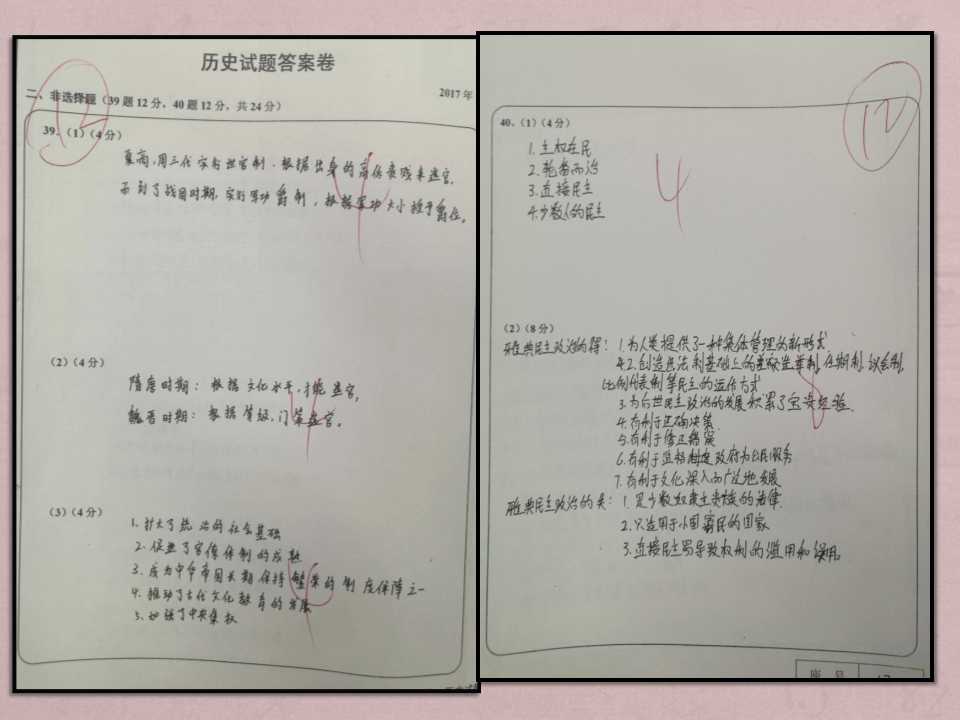 历史试题答案卷
2017年
二、非选择题（39题12分，40题12分，共24分）
12
39.（1）（4分）
夏商、周三代实行世官制，根据出身的高低贵贱来选官，
而到了战国时期，实行军功爵制，根据军功大小授予爵位。
4
（2）（4分）
隋唐时期：根据文化水平，才能选官，
魏晋时期：根据等级、门第选官。
4
（3）（4分）
1、扩大了统治的社会基础
2、促进了官僚体制的成熟
3、成为中华帝国长期保持繁荣的制度保障之一
4、推动了古代文化教育的发展
5、加强了中央集权
4
12
40.（1）（4分）
1.主权在民
2.轮番而治
3.直接民主
4.少数人的民主
4
（2）（8分）
雅典民主政治的得：1.为人类提供了一种集体管理的新形式
2.创造出法制基础上的选举制,任期制,议会制,
比例代表制等民主的运作方式
3.为后世民主政治的发展积累了宝贵经验.
4.有利于正确决策.
5.有利于修正错误
6.有利于监督政府为公民服务
7.有利于文化深入而广泛地发展
8
雅典民主政治的失：1.是少数奴隶主的法律.
2.只适用于小国寡民的国家
3.直接民主易导致权利的滥用和误用
座 号